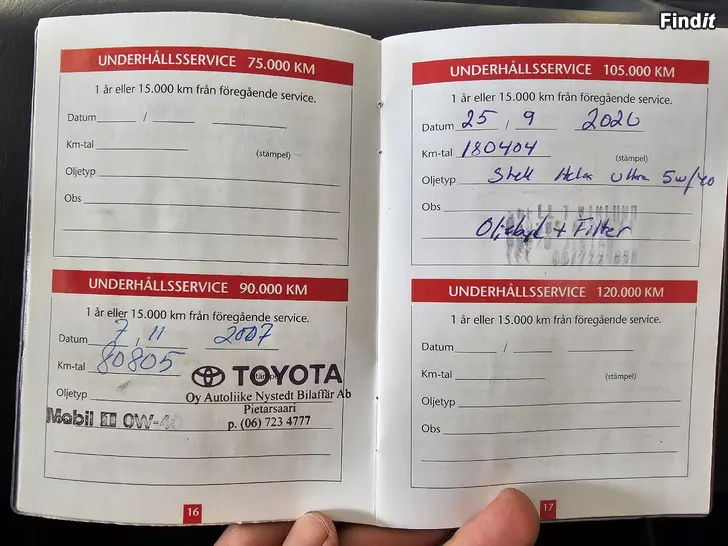 Findit
UNDERHÅLLSSERVICE 75.000 KM
1 år eller 15.000 km från föregående service.
Datum / /
Km-tal
(stämpel)
Oljetyp
Obs
16
UNDERHÅLLSSERVICE 90.000 KM
1 år eller 15.000 km från föregående service.
Datum 7 / 11 2007
Km-tal 80805
TOYOTA
Oy Autoliike Nystedt Bilaffär Ab
Oljetyp
Pietarsaari
Mobil 1 0W-40
p. (06) 723 4777
UNDERHÅLLSSERVICE 105.000 KM
1 år eller 15.000 km från föregående service.
Datum 25 / 9 2020
Km-tal 180404
(stämpel)
Oljetyp Shell Helix Ultra 5w/40
Obs
Oljebyte + Filter
UNDERHÅLLSSERVICE 120.000 KM
1 år eller 15.000 km från föregående service.
Datum /
Km-tal
(stämpel)
Oljetyp
Obs
17